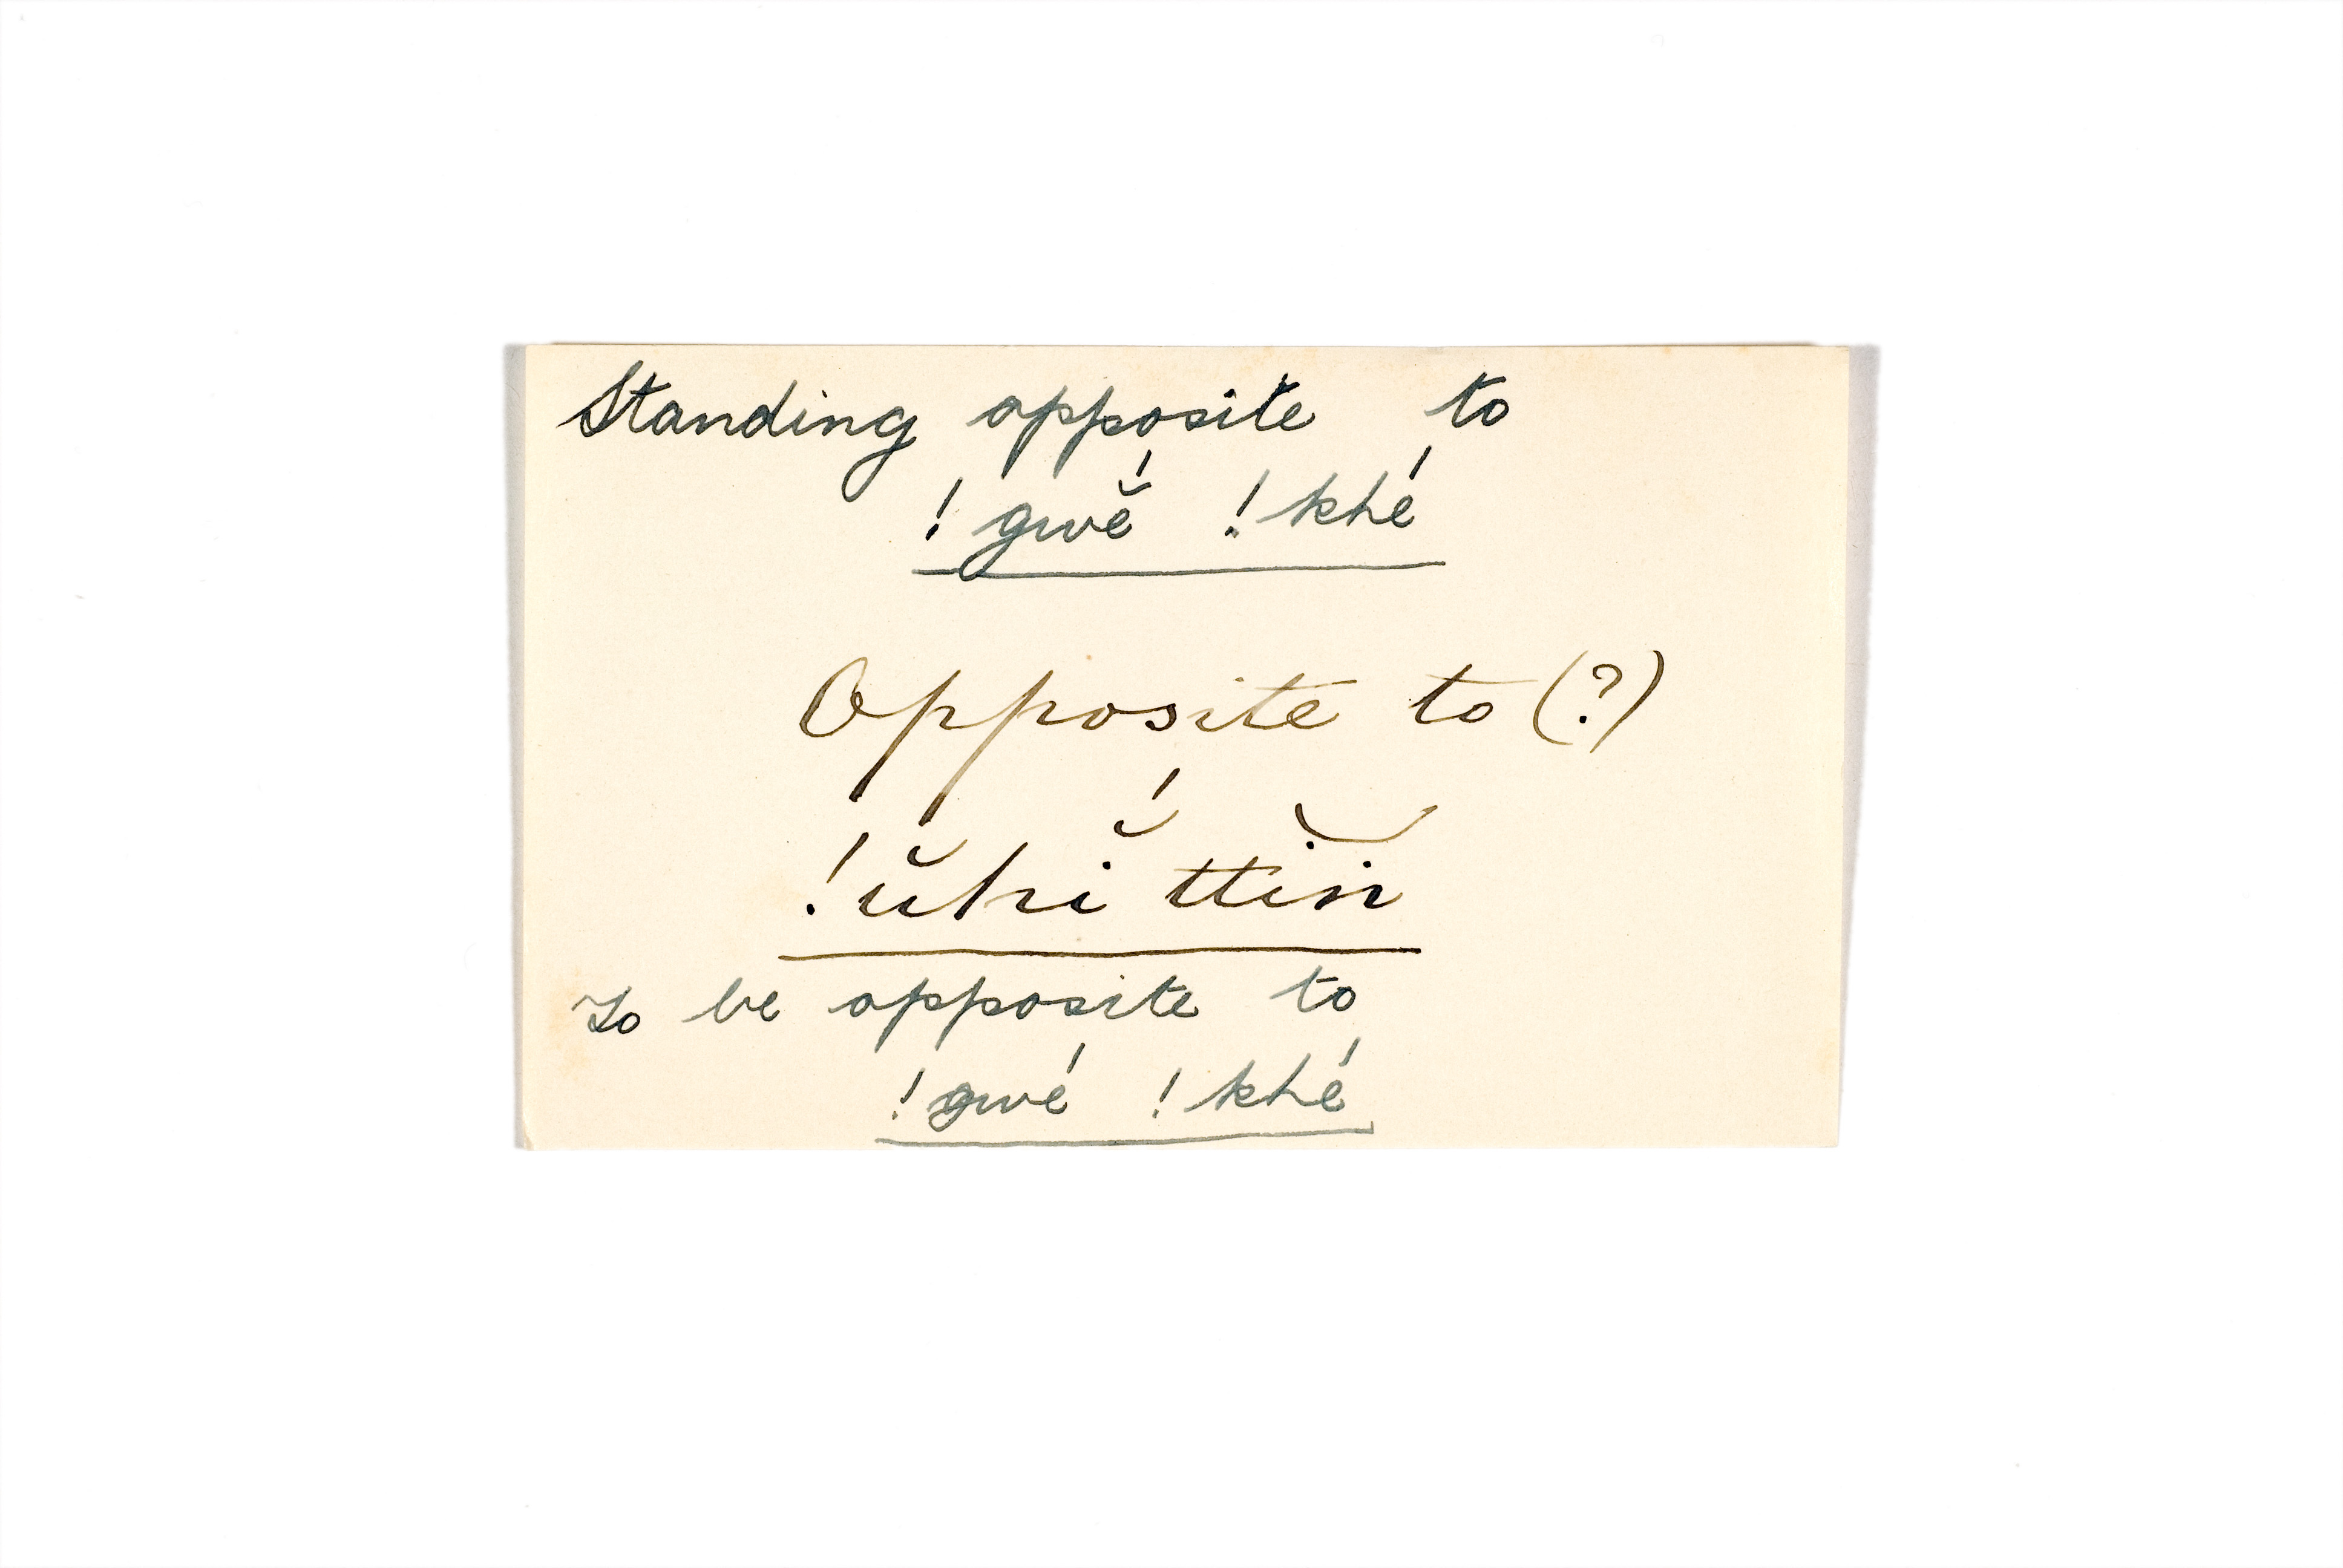 Standing opposite to
! gwé̆ ! khé
Opposite to (?)
!ŭhĭ́ ttĭṅ
To be opposite to
! gwé ! khé